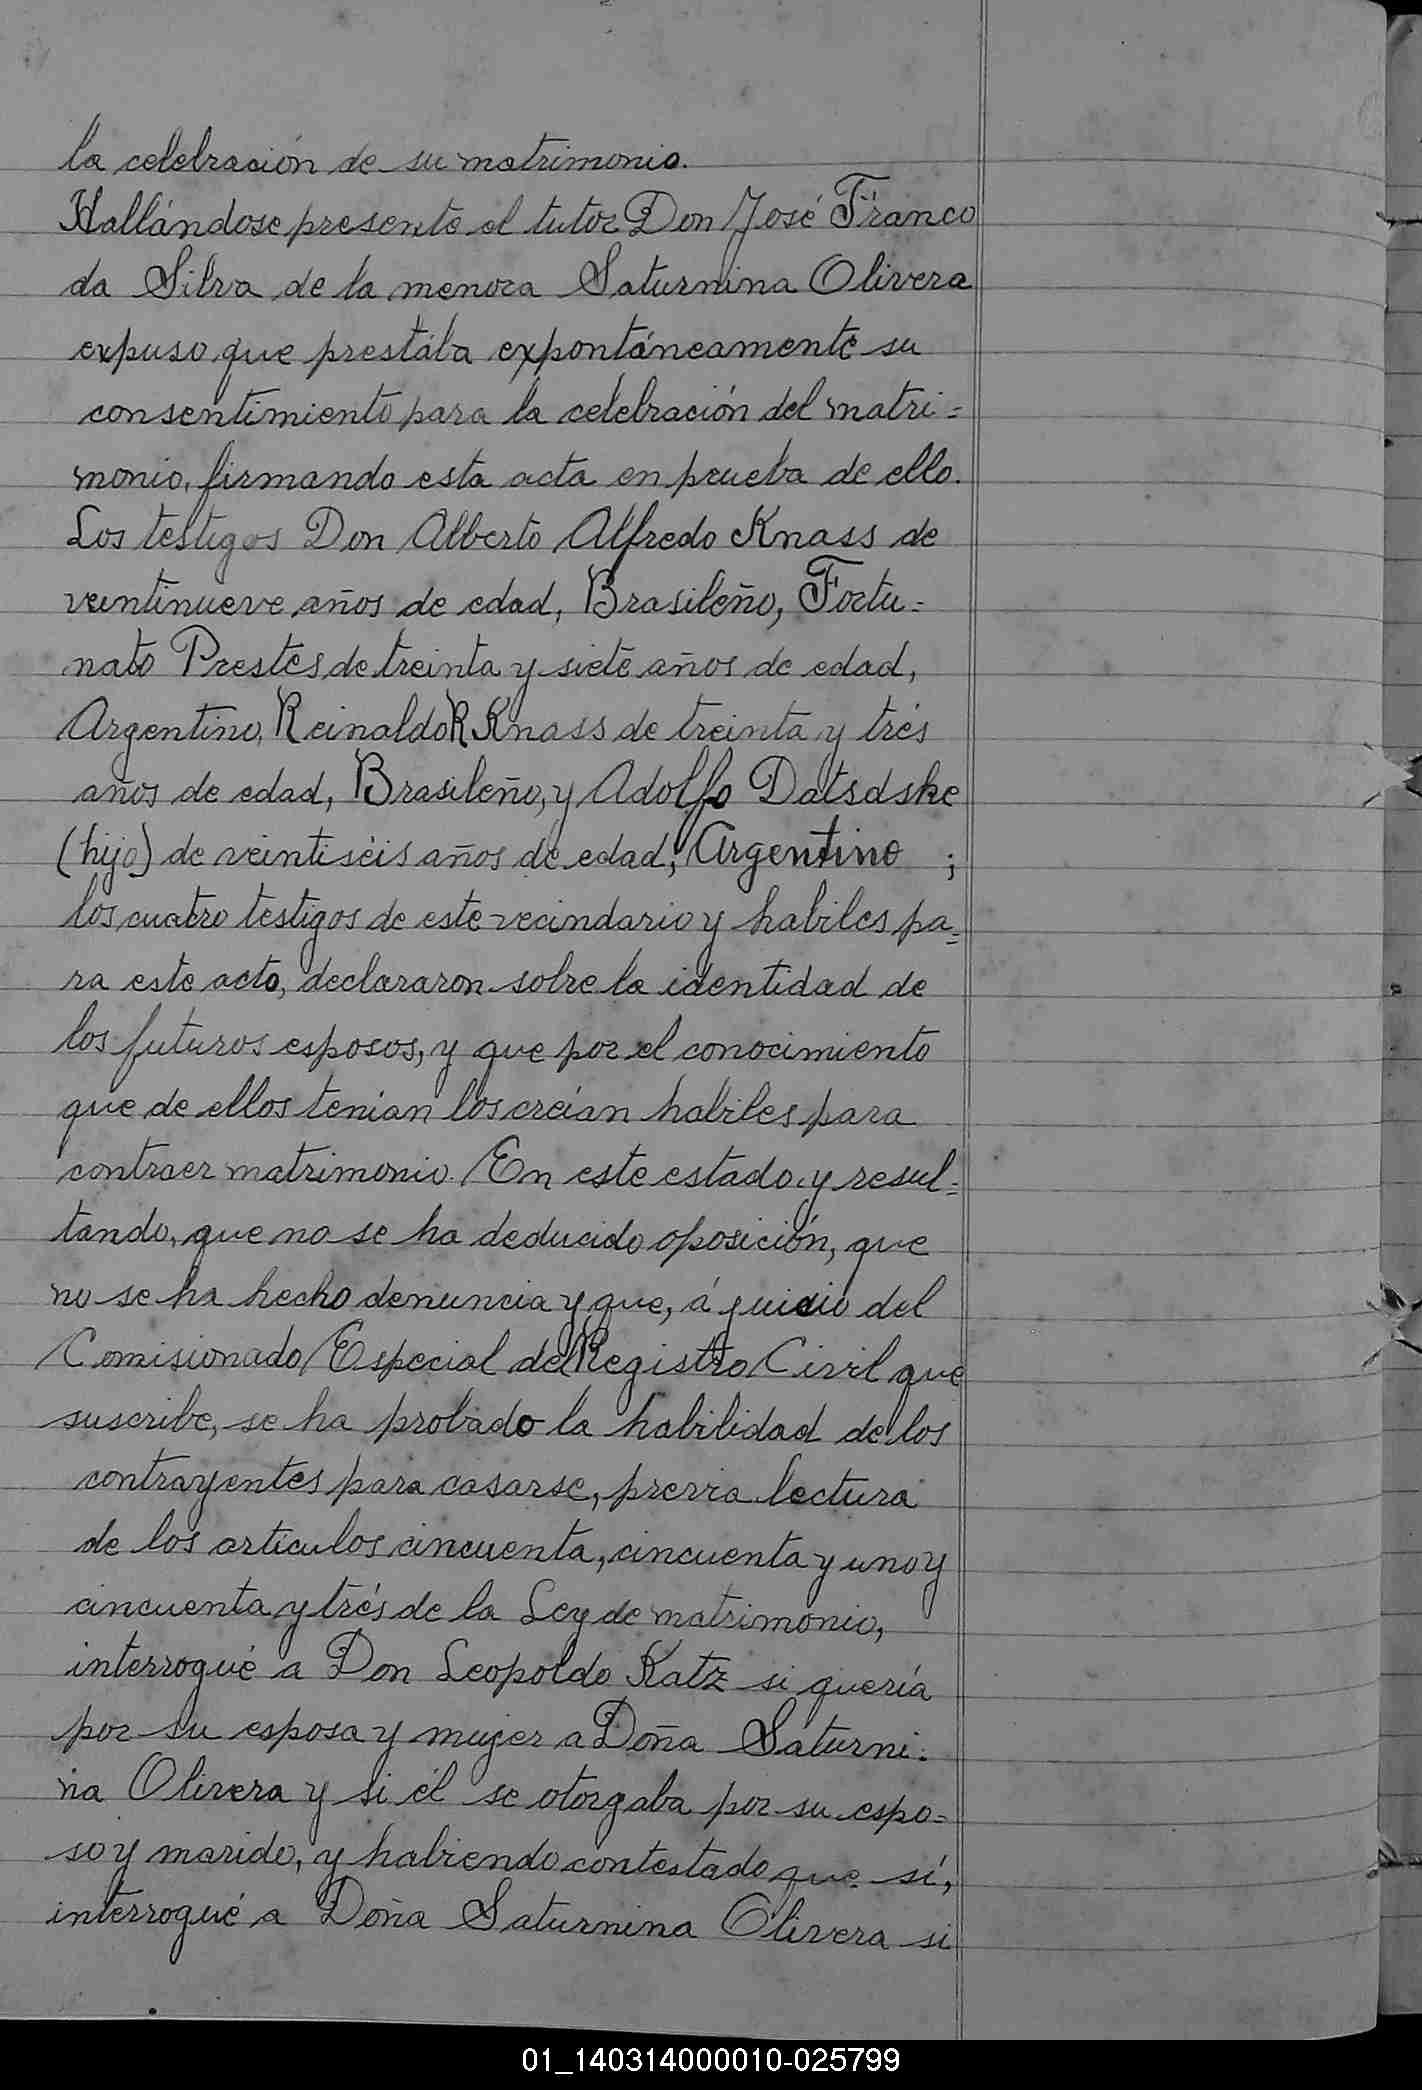 la celebración de su matrimonio.
Hallándose presente el tutor Don José Franco
da Silva de la menora Saturnina Olivera
expuso que prestába expontáneamente su
consentimiento para la celebración del matri=
monio, firmando esta acta en prueba de ello.
Los testigos Don Alberto Alfredo Knass de
veintinueve años de edad, Brasileño, Fortu=
nato Prestes de treinta y siete años de edad,
Argentino, Reinaldo R Knass de treinta y trés
años de edad, Brasileño, y Adolfo Datsdske
(hijo) de veintiséis años de edad, Argentino ;
los cuatro testigos de este vecindario y habiles pa=
ra este acto, declararon sobre la identidad de
los futuros esposos, y que por el conocimiento
que de ellos tenian los creían habiles para
contraer matrimonio. En este estado y resul=
tando, que no se ha deducido oposición, que
no se ha hecho denuncia y que, á juicio del
Comisionado Especial del Registro Civil que
suscribe, se ha probado la habilidad de los
contrayentes para casarse, previa lectura
de los articulos cincuenta, cincuenta y uno y
cincuenta y trés de la Ley de matrimonio,
interrogué a Don Leopoldo Katz si quería
por su esposa y mujer a Doña Saturni=
na Olivera y si él se otorgaba por su espo=
so y marido, y habiendo contestado que sí,
interrogué a Doña Saturnina Olivera si
01_140314000010-025799